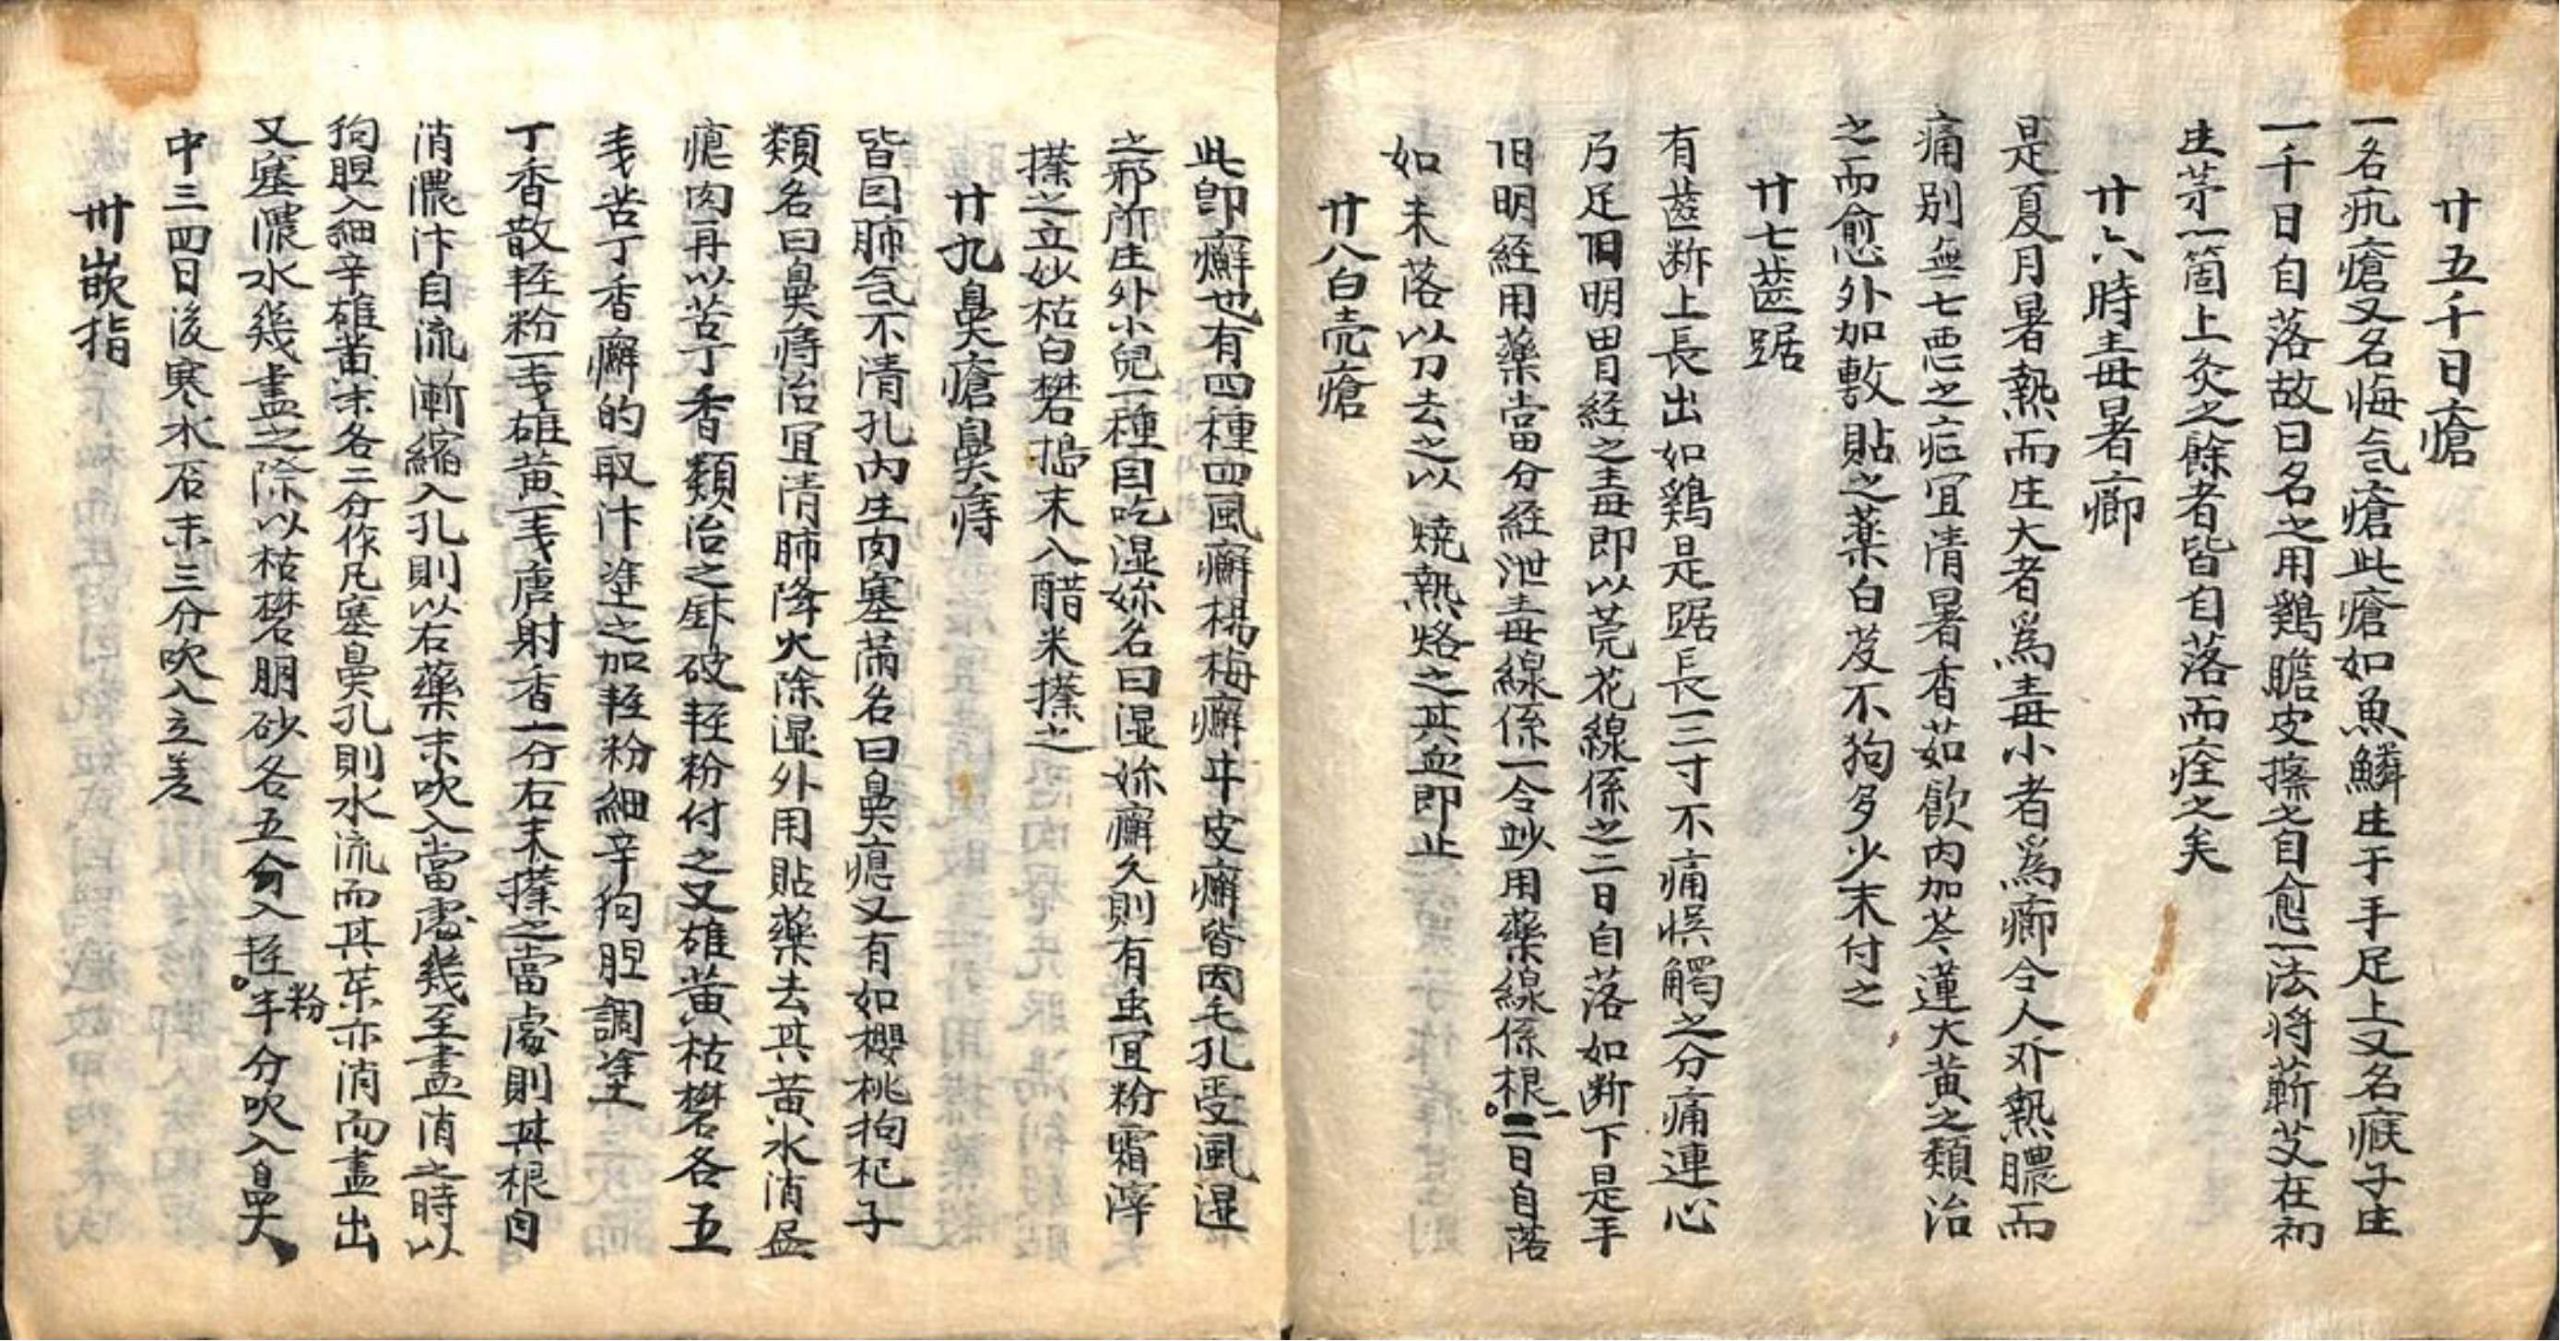 廿五千日瘡
一名疣瘡又名悔气瘡此瘡如魚鱗生于手足上又名瘊子生
一千日自落故曰名之用鷄膽皮擦之自愈一法將蘄艾在初
生芽一箇上灸之餘者皆自落而痊之矣
廿六時毒暑癤
是夏月暑熱而生大者爲毒小者爲癤令人外熱膿而
痛別無七恶之症宜清暑香茹飮內加芩蓮大黃之類治
之而愈外加敷貼之薬白芨不狗多少末付之
廿七齒踞
有齒断上長出如鷄是踞長三寸不痛悞觸之分痛連心
乃足旧明胃経之毒即以芫花線係之二日自落如断下是手
旧明経用藥當分経泄毒線係一令妙用藥線係根二日自落
如未落以刀去之以燒熱烙之其血即止
廿八白壳瘡
此卽癬也有四種曰風癬楊梅癬牛皮癬皆因毛孔受風湿
之邪所生外小兒一種因吃湿妳名曰湿妳癬久則有虫宜粉霜滓
搽之立妙枯白礬搗末入醋米搽之
廿九鼻瘡鼻痔
皆因肺气不清孔內生肉塞滿名曰鼻瘜又有如櫻桃拘杞子
類名曰鼻痔治宜清肺降火除湿外用貼藥去其黃水消盡
瘜肉再以苦丁香類治之卽破輊粉付之又雄黃枯礬各五
戋苦丁香癬的取汴塗之加輊粉細辛狗胆調塗
丁香散輊粉一戋雄黃一戋唐射香一分右末搽之當處則其根自
消濃汴自流漸縮入孔則以右藥末吹入當處幾至盡消之時以
狗胆入細辛雄黃末各二分作凡塞鼻孔則水流而其菜亦消而盡出
又塞濃水幾盡之除以枯礬朋砂各五分入輊粉半分吹入鼻
中三四日後寒水石末三分吹入立差
卅嵌指